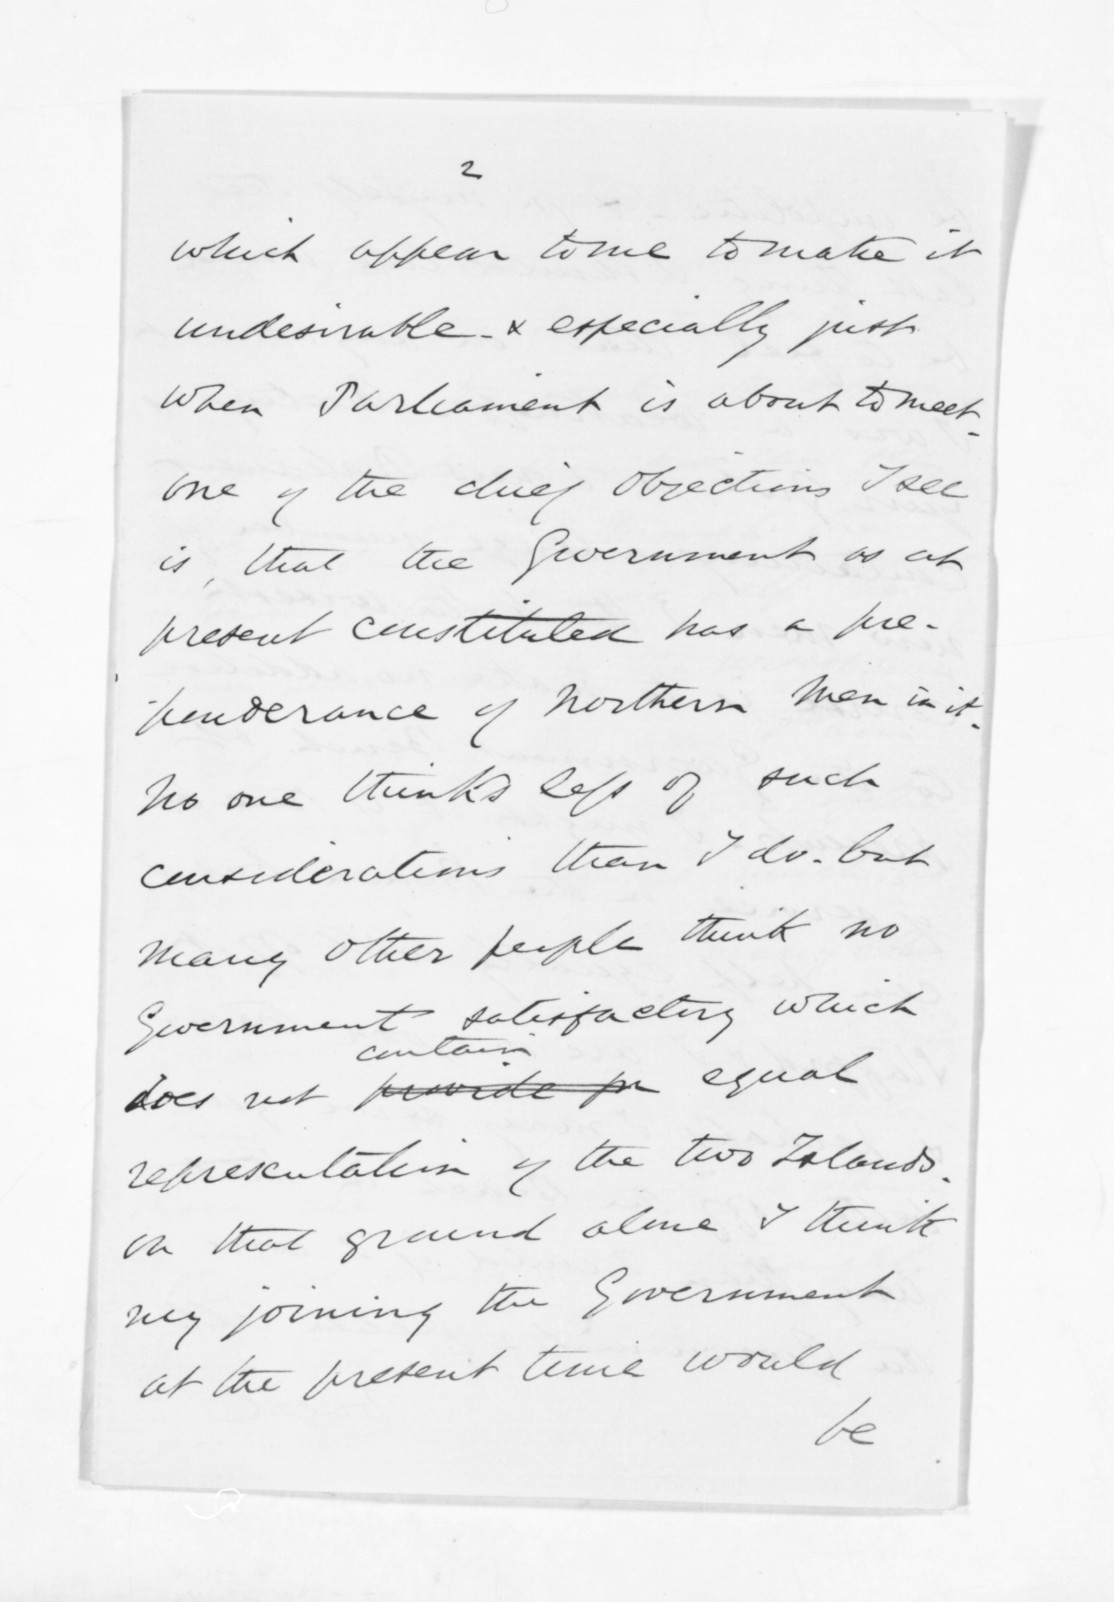 2
which appear to me to make it
undesirable - & especially just
when Parliament is about to meet -
one of the chief objections I see
is, that the Government as at
present constituted has a pre-
-ponderance of Northern Men in it -
No one thinks less of such
considerations than I do - but
many other people think no
Government satisfactory which
contain
does not provide for equal
representation of the two Islands.
on that ground alone I think
my joining the Government
at the present time would
be